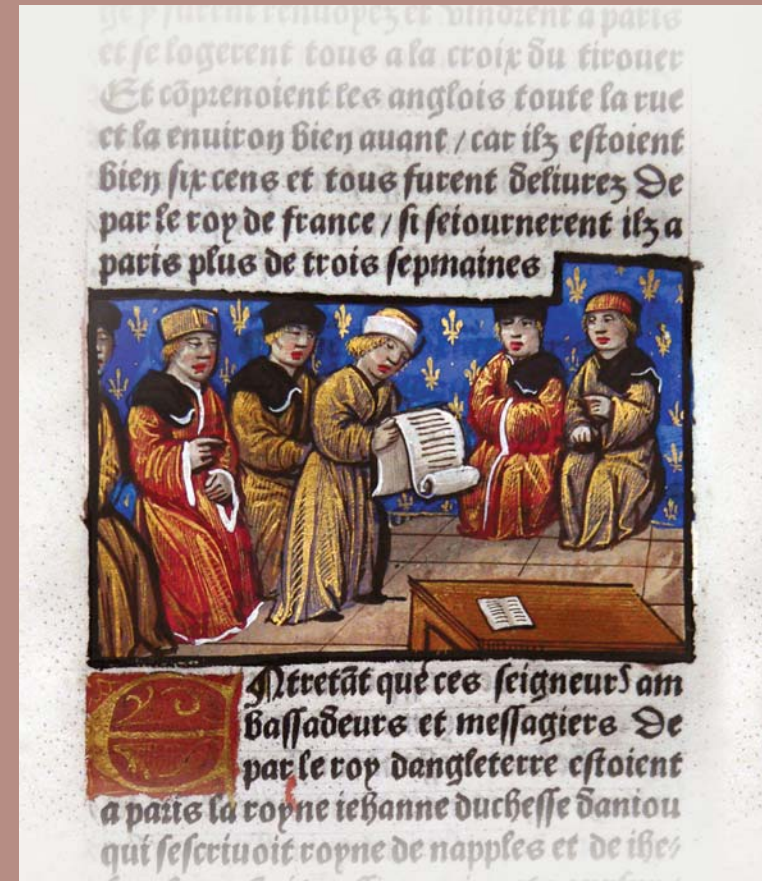 et se logerent tous a la croix du tirouer
Et cõprenoient les anglois toute la rue
et la enuiron bien auant / car ilz estoient
bien six cens et tous furent deliurez De
par le roy de france / si seiournerent ilz a
paris plus de trois sepmaines
ENtretãt que ces seigneurs am
bassadeurs et messagiers De
par le roy dangleterre estoient
a paris la royne iehanne duchesse daniou
qui sescriuoit royne de napples et de ihe⸗